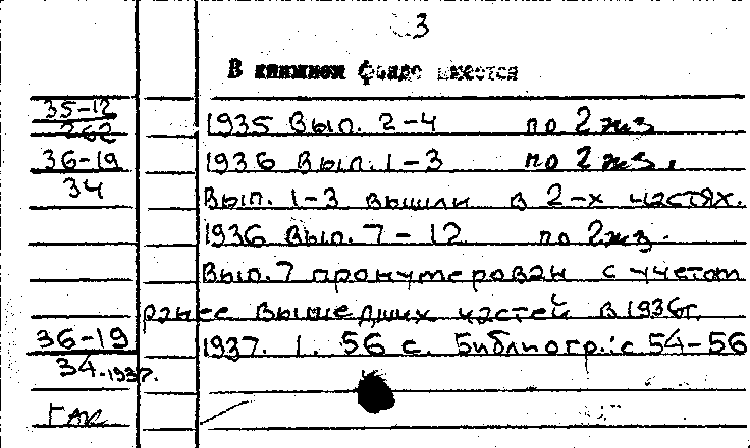 3
В книжном фонде имеется
35-12
262
1935 Вып. 2-4 по 2 экз
36-19
34
1936 Вып. 1-3 по 2 экз.
Вып. 1-3 вышли в 2-х частях.
1936 Вып. 7-12 по 2 экз.
Вып. 7 пронумерован с учетом
ранее вышедших частей в 1936г.
36-19
34-1937.
1937. 1. 56 с. Библиогр.: с 54-56
ГАК